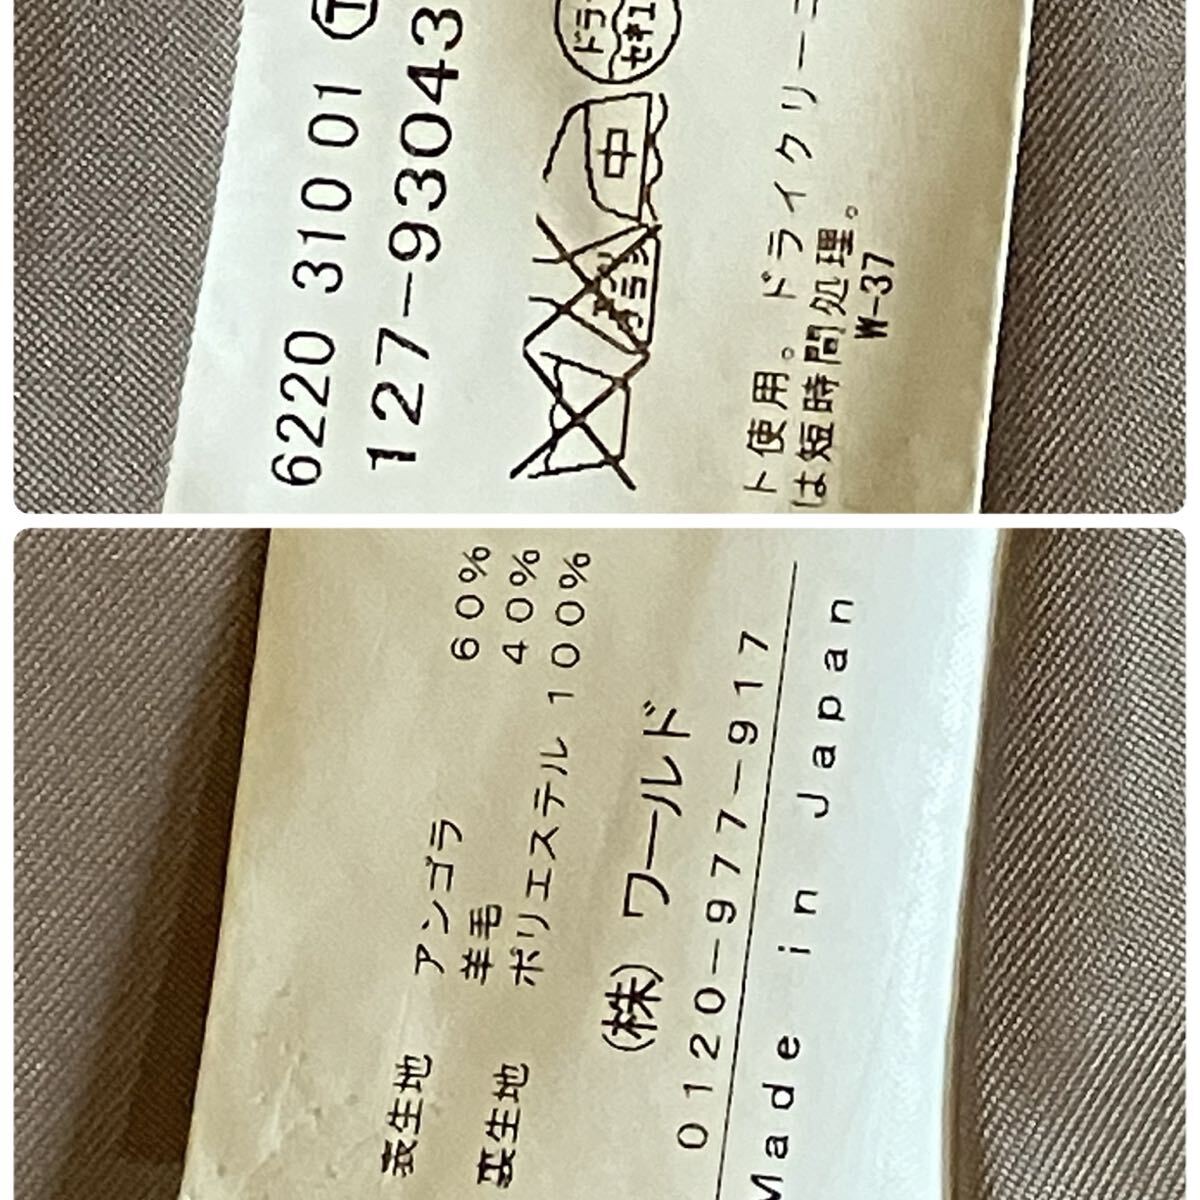 6220 310 01 Ⓣ
127-93043
エンソ サラシ
中
ドライ
セキユ
ト使用。ドライクリーニ
は短時間処理。
W-37
表生地 アンゴラ 60%
羊毛 40%
裏生地 ポリエステル 100%
(株) ワールド
0120-977-917
Made in Japan